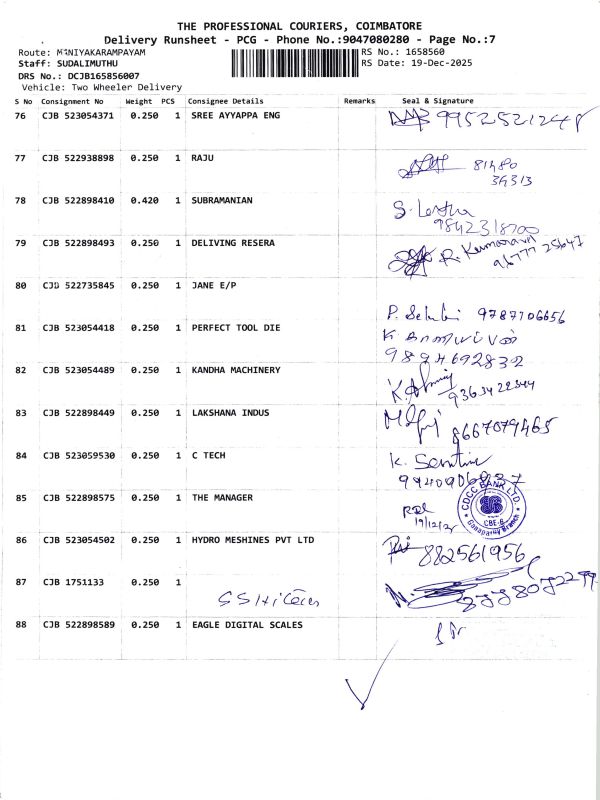 THE PROFESSIONAL COURIERS, COIMBATORE
Delivery Runsheet - PCG - Phone No.:9047080280 - Page No.:7
Route: MANIYAKARAMPAYAM
RS No.: 1658560
Staff: SUDALIMUTHU
RS Date: 19-Dec-2025
DRS No.: DCJB165856007
Vehicle: Two Wheeler Delivery
S No Consignment No Weight PCS Consignee Details Remarks Seal & Signature
76 CJB 523054371 0.250 1 SREE AYYAPPA ENG
77 CJB 522938898 0.250 1 RAJU
81480
39313
78 CJB 522898410 0.420 1 SUBRAMANIAN
9842318700
79 CJB 522898493 0.250 1 DELIVING RESERA
R.
96777 25647
80 CJB 522735845 0.250 1 JANE E/P
P. 9787706656
81 CJB 523054418 0.250 1 PERFECT TOOL DIE
9894692832
82 CJB 523054489 0.250 1 KANDHA MACHINERY
9363422344
83 CJB 522898449 0.250 1 LAKSHANA INDUS
8667079465
84 CJB 523059530 0.250 1 C TECH
K.
85 CJB 522898575 0.250 1 THE MANAGER
CDCC BANK LTD.
Ganapathy Branch
CBE-6
19/12/25
86 CJB 523054502 0.250 1 HYDRO MESHINES PVT LTD
882561956
87 CJB 1751133 0.250 1
88 CJB 522898589 0.250 1 EAGLE DIGITAL SCALES